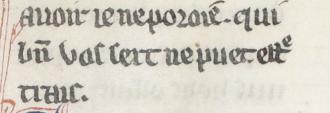 auoir ie ne poroie. qui
bn̄ uos sert ne puet estre
trais.